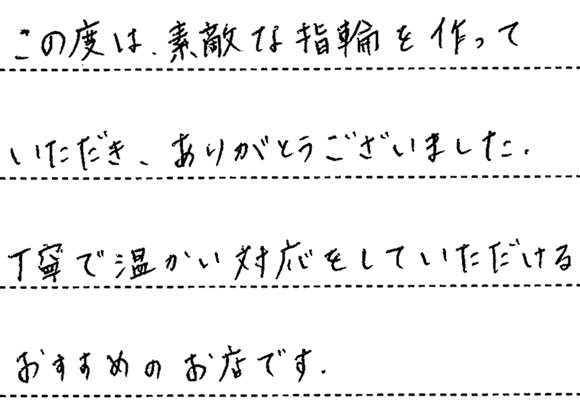 この度は、素敵な指輪を作って
いただき、ありがとうございました.
丁寧で温かい対応をしていただける
おすすめのお店です.